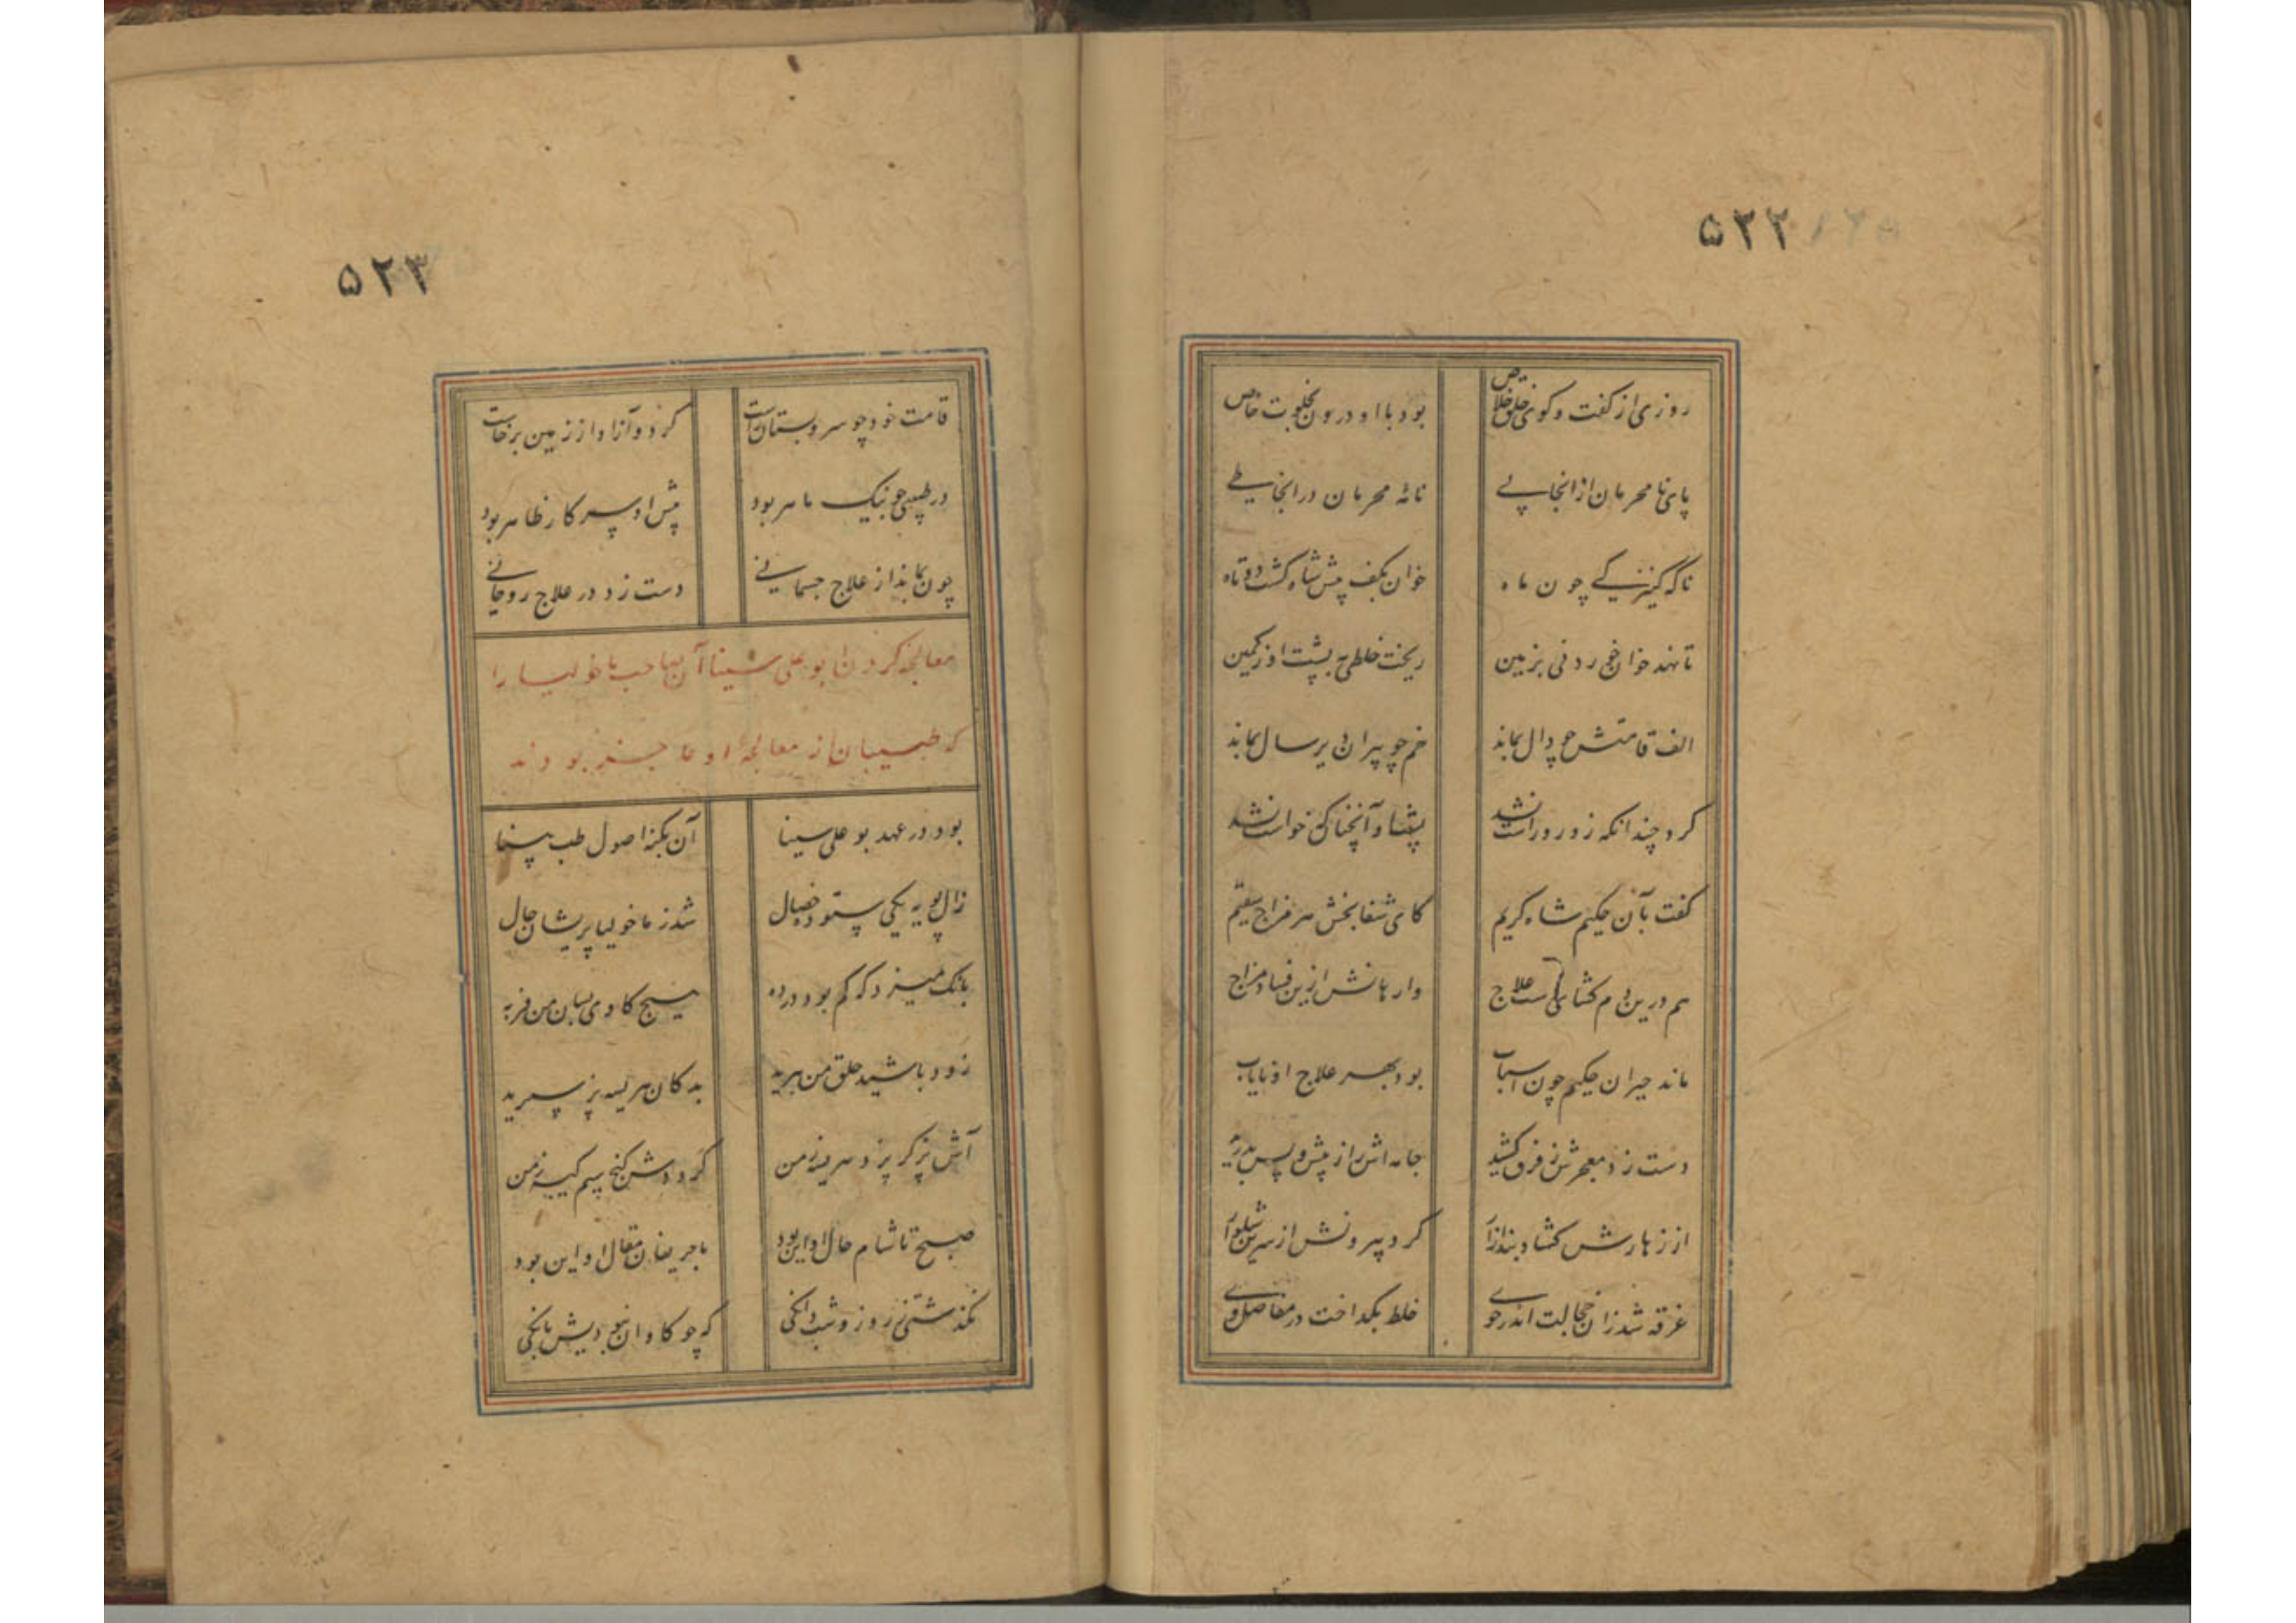 ۵۲۲
روزی از کفت و کوی خلق خلاص بود با او درون بخلوت خاص
پای نا محرمان از انجا پی نائه محرمان در انجا طی
ناکه کنیزکی چون ماه خوان بکف پیش شاه کشت دوتاه
تا نهد خوان خوردنی بزمین ریخت خلطی به پشت او ز کمین
الف قامتش چو دال بماند خم چو پیران دیرسال بماند
کرد چندانکه زور و راست نشد پشت او آنچنانکه خواست نشد
کفت با آن حکیم شاه کریم کای شفا بخش هر مزاج سقیم
هم درین دم کشای دست علاج وارهانش ازین فساد مزاج
ماند حیران حکیم چون اسباب بود بهر علاج او نایاب
دست زد معجرش ز فرق کشید جامه اش را ز پیش و پس بدرید
از زهارش کشاد بند ازار کرد بیرونش از سرین شلوار
غرقه شد زان خجالت اندر خوی خلط بکداخت در مفاصل وی
۵۲۳
قامت خود چو سرو بستان راست کرد و آزاد از زمین برخاست
در طبیعی چو نیک ماهر بود پیش او سر کار ظاهر بود
چون بماند از علاج جسمانی دست زد در علاج روحانی
معالجه کردن ابو علی سینا آن صاحب ماخولیا را
که طبیبان از معالجه او عاجز بودند
بود در عهد بو علی سینا آن بکنه اصول طب بینا
ز آل بویه یکی ستوده خصال شد ز ماخولیا پریشان حال
بانک میزد که کم بود در ده هیچ کاوی بسان من فربه
زود باشید حلق من ببرید بدکان هریسه پز سپرید
آش پز کر پزد هریسه ز من کرددش کنج سیم کیسه ز من
صبح تا شام حال او این بود با حریفان مقال او این بود
نکذشتی ز روز و شب دانکی که چو کاوان نبودیش بانکی